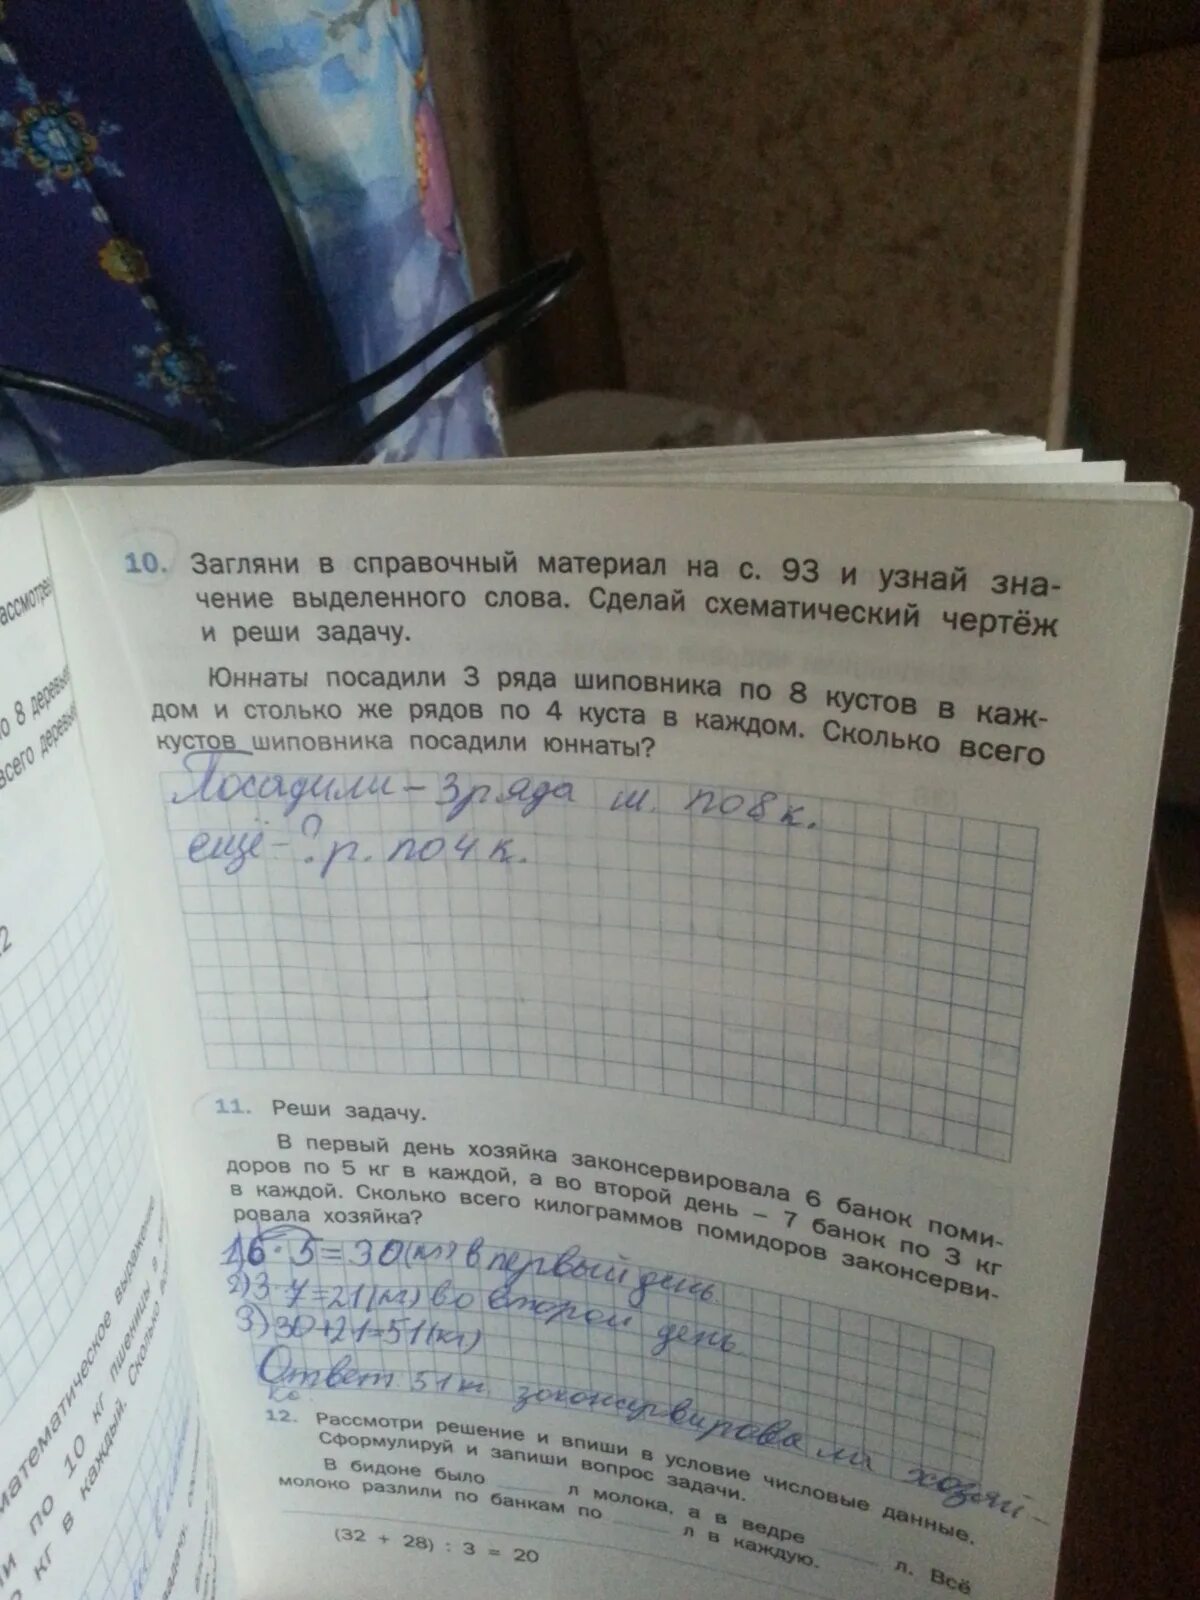 10. Загляни в справочный материал на с. 93 и узнай зна-
чение выделенного слова. Сделай схематический чертёж
и реши задачу.
Юннаты посадили 3 ряда шиповника по 8 кустов в каж-
дом и столько же рядов по 4 куста в каждом. Сколько всего
кустов шиповника посадили юннаты?
Посадили – 3 ряда ш. по 8 к.
ещё - ? р. по 4 к.
11. Реши задачу.
В первый день хозяйка законсервировала 6 банок поми-
доров по 5 кг в каждой, а во второй день – 7 банок по 3 кг
в каждой. Сколько всего килограммов помидоров законсерви-
ровала хозяйка?
1) 6 · 5 = 30 (кг) в первый день
2) 3 · 7 = 21 (кг) во второй день
3) 30 + 21 = 51 (кг)
Ответ 51 кг законсервировала хозяй-
ка
12. Рассмотри решение и впиши в условие числовые данные.
Сформулируй и запиши вопрос задачи.
В бидоне было ____ л молока, а в ведре ____ л. Всё
молоко разлили по банкам по ____ л в каждую.
(32 + 28) : 3 = 20
о 8 деревьев
всего деревьев
атематическое выражение
по 10 кг пшеницы в
кг в каждый. Сколько все